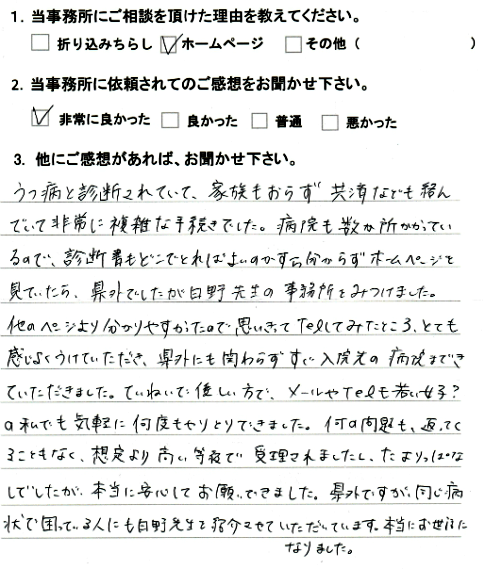 1. 当事務所にご相談を頂けた理由を教えてください。
折り込みちらし ホームページ その他（ ）
2. 当事務所に依頼されてのご感想をお聞かせ下さい。
非常に良かった 良かった 普通 悪かった
3. 他にご感想があれば、お聞かせ下さい。
うつ病と診断されていて、家族もおらず 共済なども絡ん
でいて非常に複雑な手続きでした。病院も数か所かかってい
るので、診断書もどこでとればよいのかすら分からずホームページを
見ていたら、県外でしたが白野先生の事務所をみつけました。
他のページより分かりやすかったので思いきってTelしてみたところ、とても
感じよくうけていただき、県外にも関わらずすぐ入院先の病院まできて
いただきました。ていねいで優しい方で、メールやTelも若い女子？
の私でも気軽に何度もやりとりできました。何の問題も、返ってく
ることもなく、想定より高い等級で受理されましたし、たよりっぱな
しでしたが、本当に安心してお願いできました。県外ですが、同じ病
状で困っている人にも白野先生を紹介させていただいています。本当にお世話に
なりました。